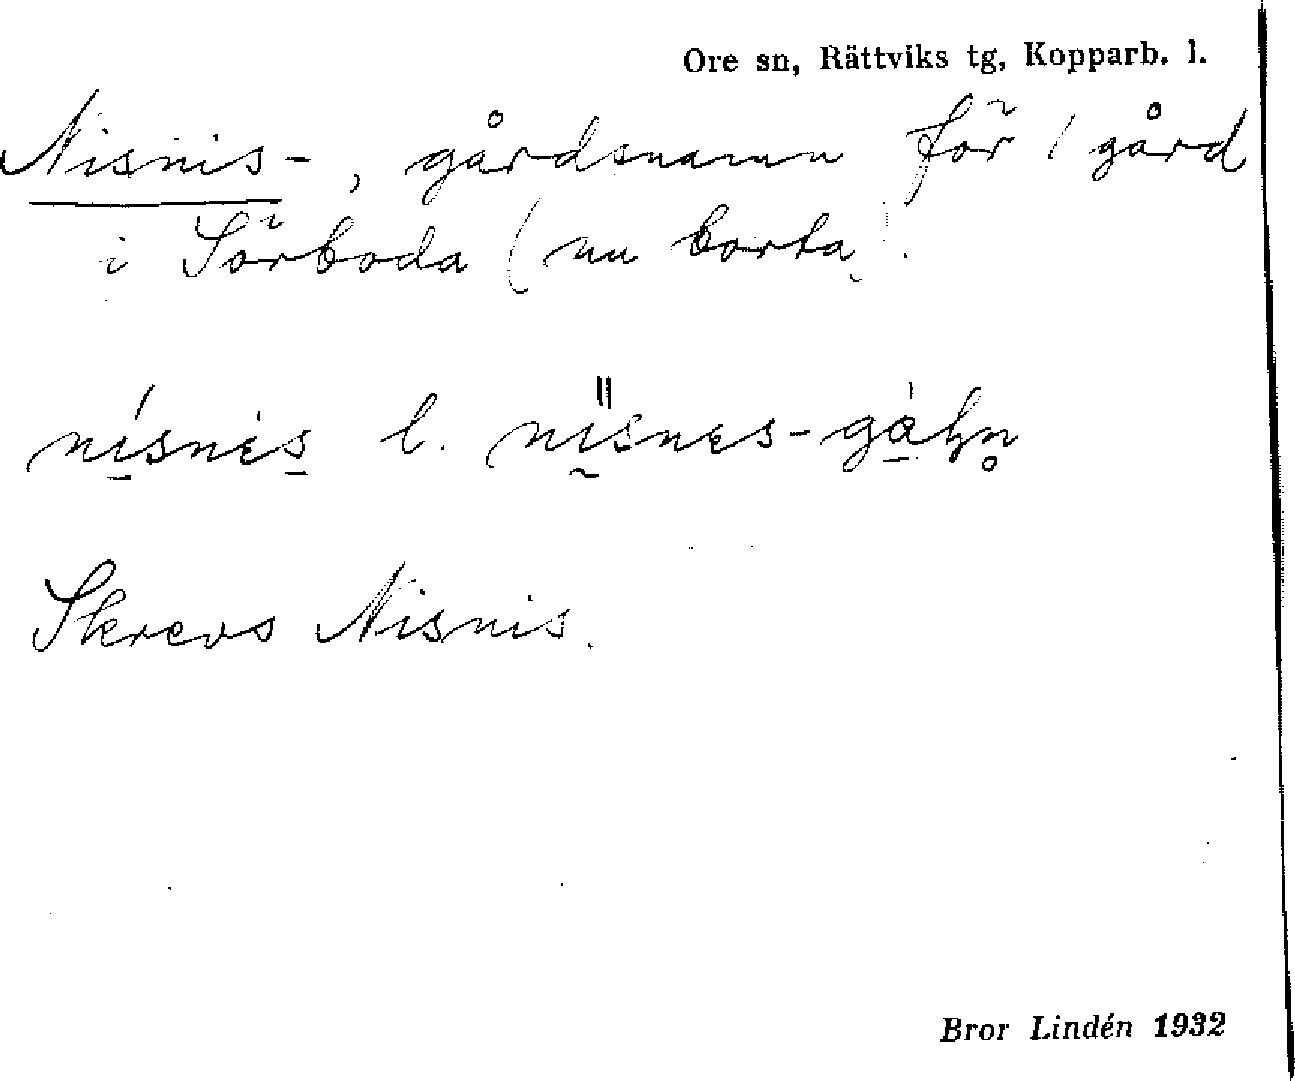 Ore sn, Rättviks tg, Kopparb. l.
Nisnis-, gårdsnamn för 1 gård
i Sörboda (nu borta).
nísnis l. nisnes-gaḷn̥
Skrevs Nisnis.
Bror Lindén 1932